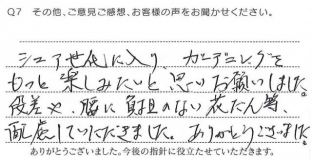 Q7 その他、ご意見ご感想、お客様の声をお聞かせください。
シニア世代に入り、ガーデニングを
もっと楽しみたいと思いお願いしました。
段差や、腰に負担のない花だん等、
配慮していただきました。ありがとうございました。
ありがとうございました。今後の指針に役立たせていただきます。